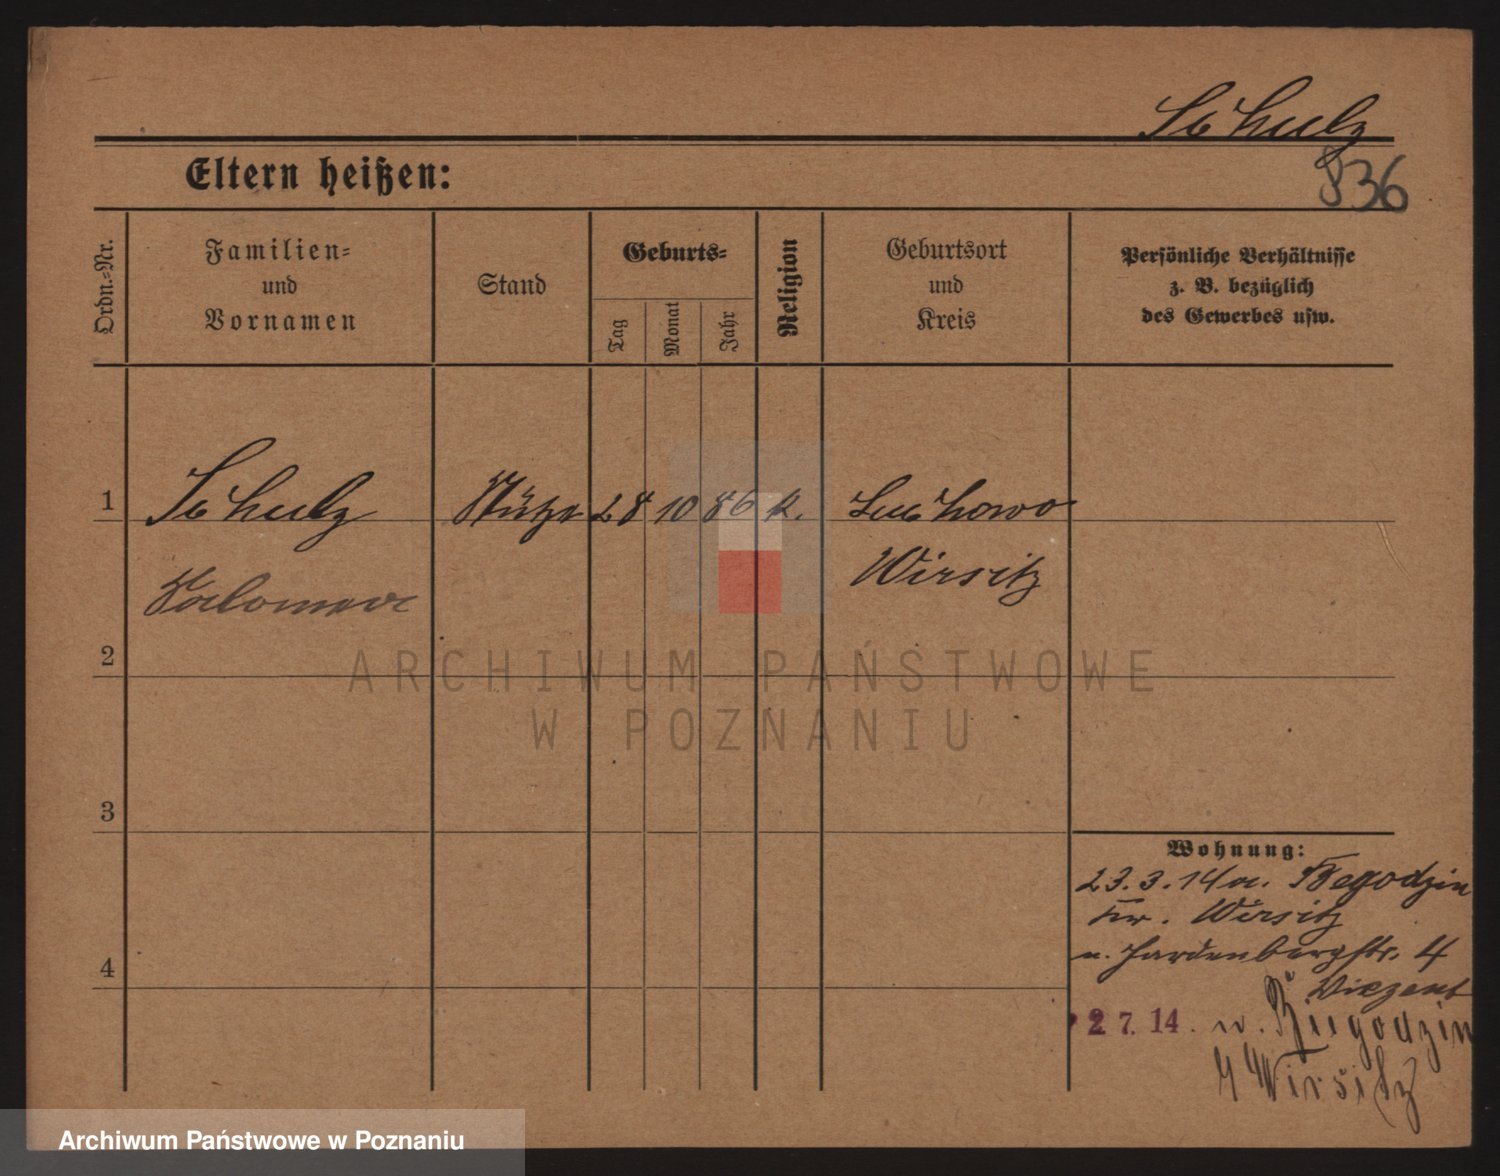 Schulz
836
Eltern heißen:
Ordn.=Nr.
Familien=
und
Vornamen
Stand
Geburts=
Tag
Monat
Jahr
Religion
Geburtsort
und
Kreis
Persönliche Verhältnisse
z. B. bezüglich
des Gewerbes usw.
1
Schulz
Stütze
28
10
86
k.
Luchowo
Wirsitz
Salomea
2
ARCHIWUM PAŃSTWOWE
W POZNANIU
3
Wohnung:
23.3.14 a.
Kr. Wirsitz
n. Hardenbergstr. 4
4
2 7. 14. n.
Wirsitz
Archiwum Państwowe w Poznaniu